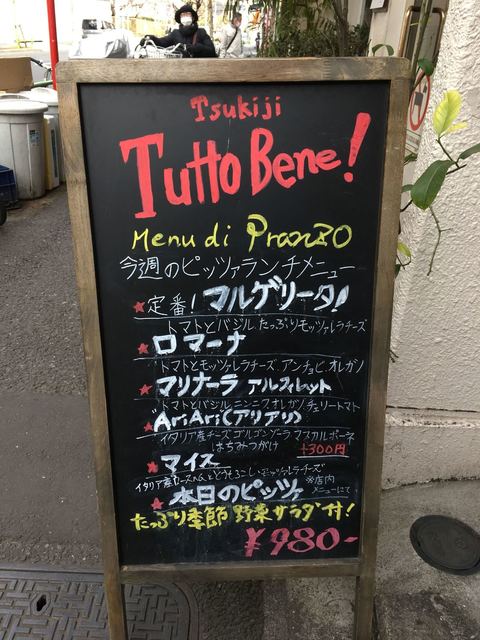 Tsukiji
Tutto Bene!
Menu di Pranzo
今週のピッツァランチメニュー
★定番！マルゲリータ！
トマトとバジル、たっぷりモッツァレラチーズ
★ロマーナ
トマトとモッツァレラチーズ、アンチョビ、オレガノ
★マリナーラ アルフィレット
トマトとバジル、ニンニク、オレガノ、チェリートマト
★AriAri(アリアリ)
イタリア産チーズ、ゴルゴンゾーラ、マスカルポーネ
はちみつがけ +300円
★マイス
イタリア産ロースハムととうもろこし、モッツァレラチーズ
★本日のピッツァ ※店内メニューにて
たっぷり季節野菜サラダ付！
¥980-